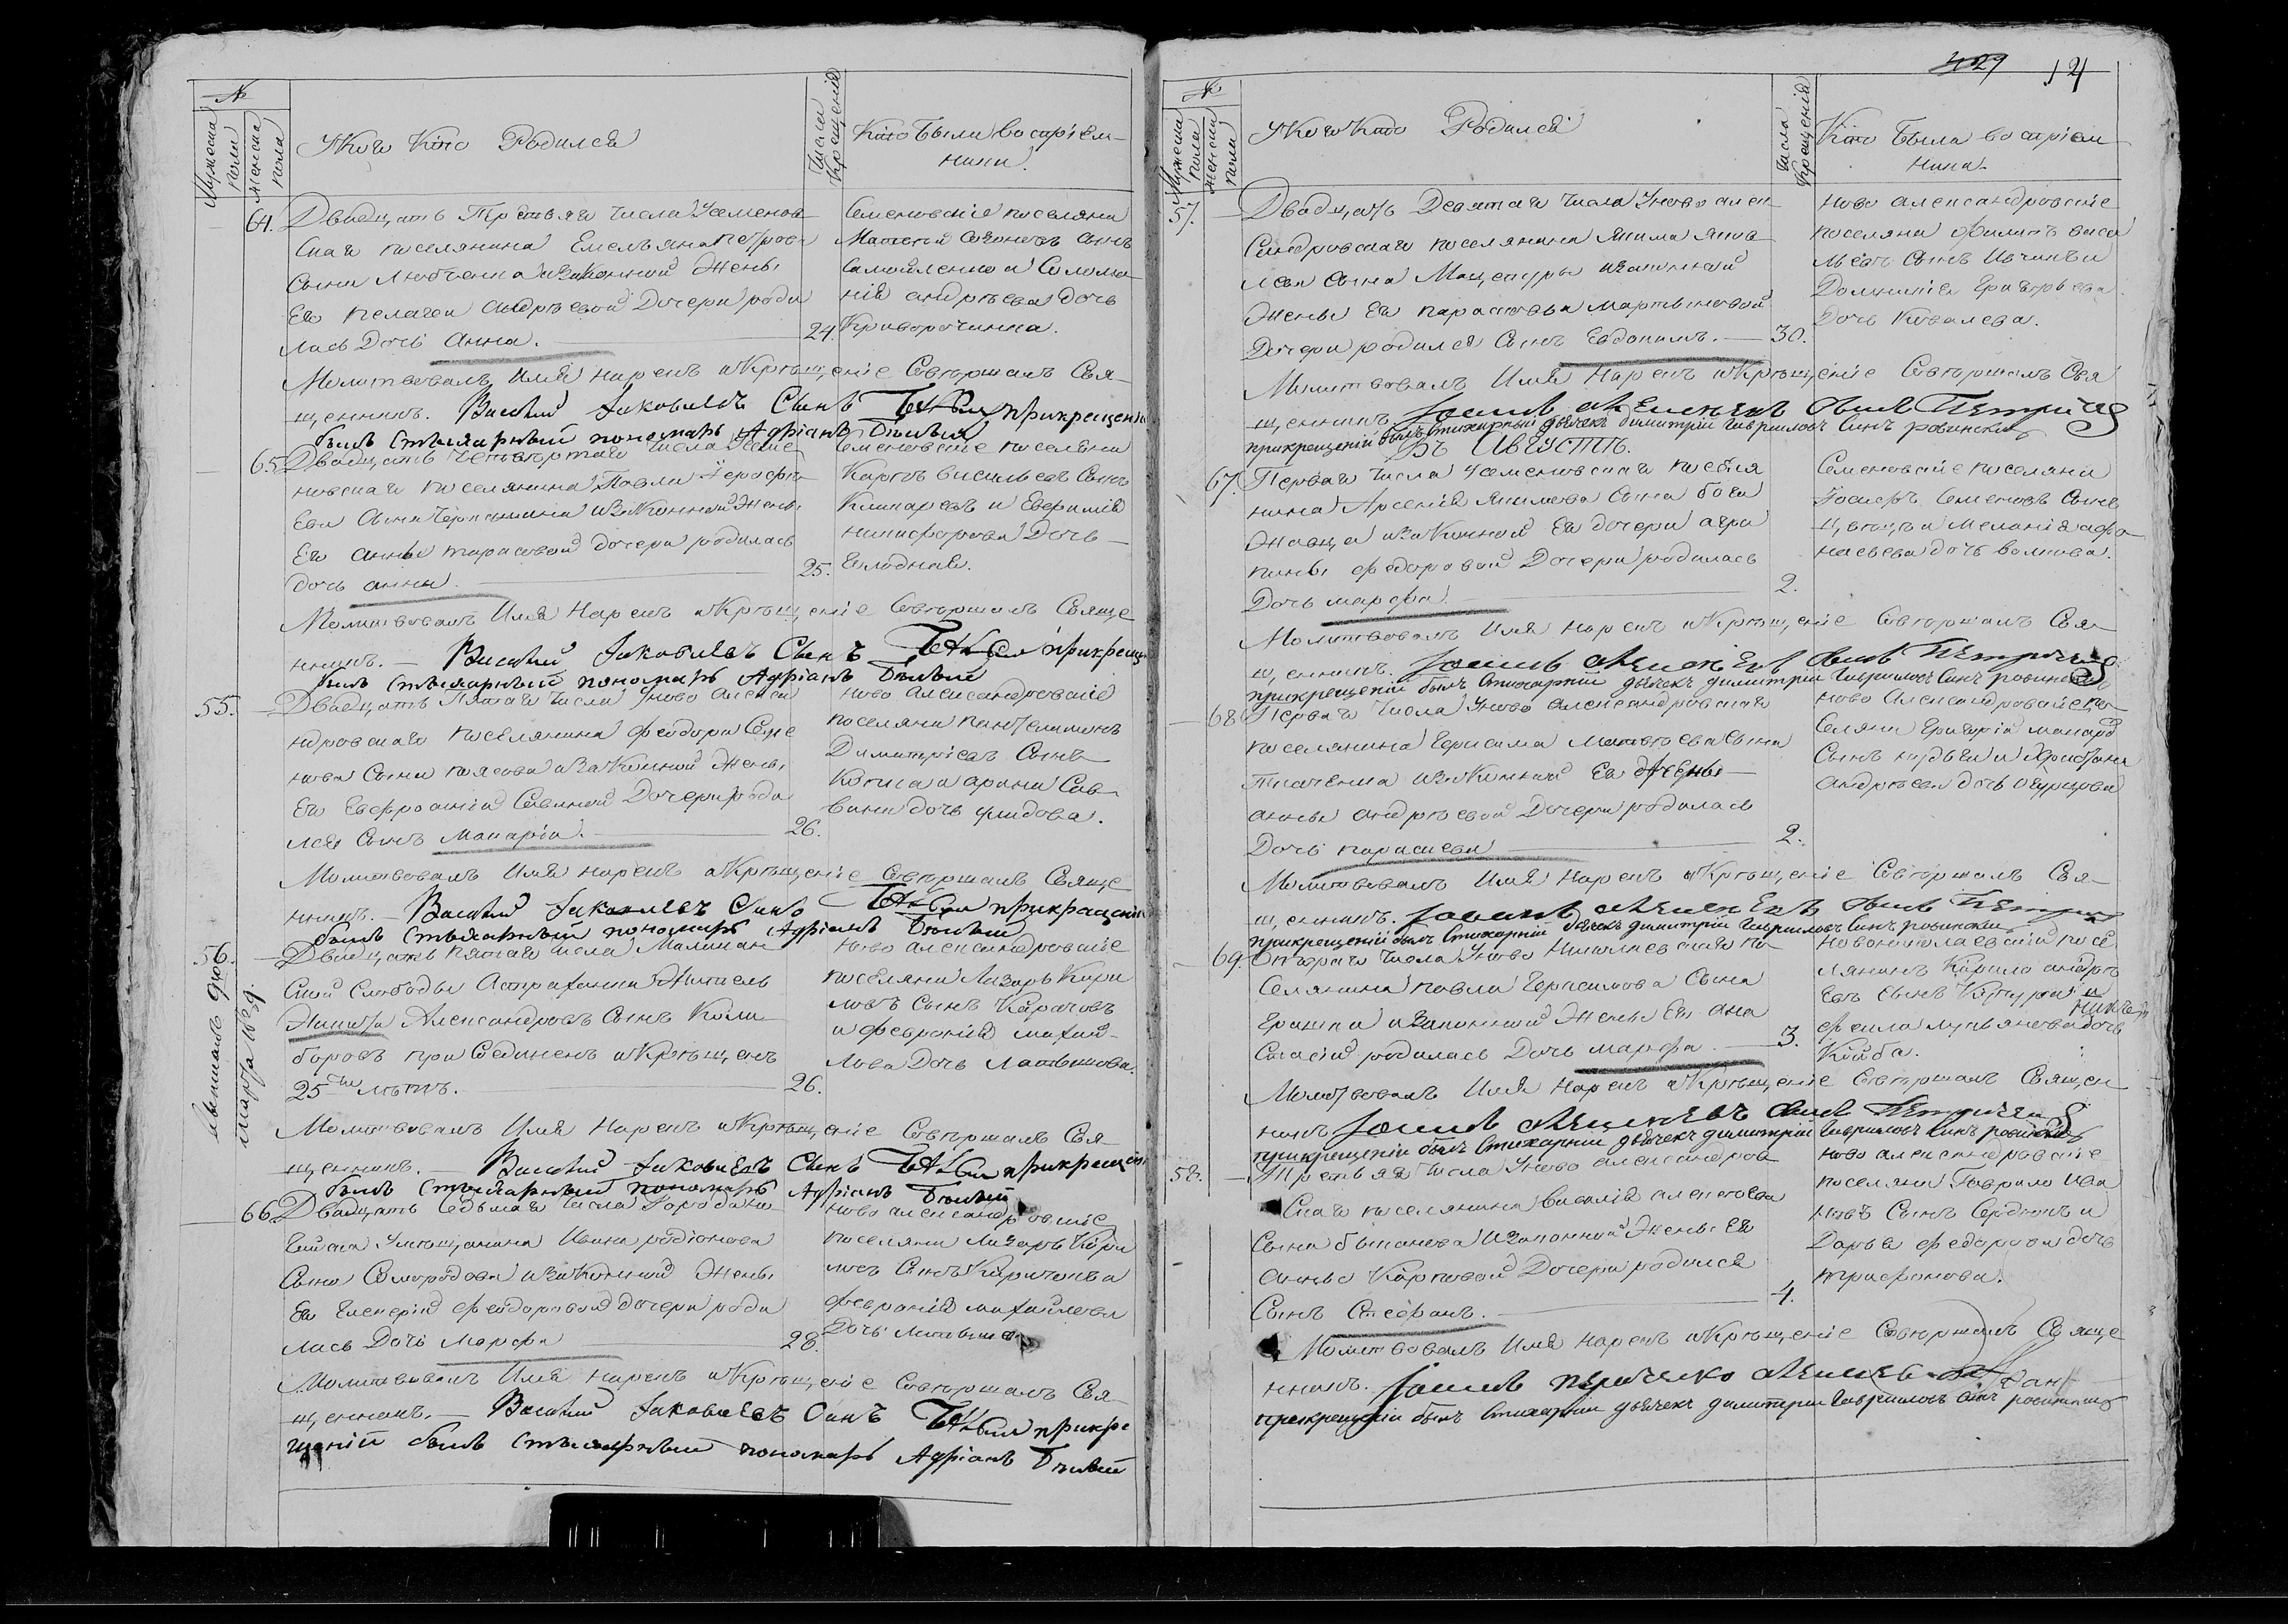 №
Мужеска пола
Женска пола
У Кого Кто Родился
Числа Крещения
Кто были восприем-
ники.
64. Двадцать Третьяго числа Усеменов-
скаго поселянина Емельяна Петрова
Сына Любченка изаконной Жены
Его Пелагеи Андреевой Дочери роди
лась Дочь Анна. 24.
Семеновские поселяне
Матвей Созоновъ Сынъ
Самойленко и Соломо
ния андреева дочь
Криворочкина.
Молитвовалъ Имя нарекъ и Крещение Совершалъ Свя-
щенникъ. Василий Іаковлевъ Сынъ прикрещении
былъ стихарный пономарь Адріанъ Белый
65. Двадцать Четвертаго числа Усеме
новскаго поселянина Павла Іерофе
ева сына изаконной Жены
Его Анны тарасовой дочери родилась
дочь анна. 25.
Семеновские поселяне
Карпъ васильевъ Сынъ
и Евфимия
никифорова Дочь
Молитвовалъ Имя Нарекъ и Крещение Совершалъ Свяще
нникъ. — Василий Іаковлевъ Сынъ прикрещении
былъ стихарный пономарь Адріанъ Белый
55. Двадцать Пятаго числа Уново Алекса
ндровскаго поселянина Феодора Семе
нова Сына изаконной Жены
Его Евфросинии Савиной Дочери роди
лся Сынъ Макарій. 26.
ново александровские
поселяне пантелимонъ
Димитриевъ Сынъ
и арина Сав-
вина дочь
Молитвовалъ Имя нарекъ и Крещение Совершалъ Свяще
нникъ. — Василий Іаковлевъ Сынъ прикрещении
былъ стихарный пономарь Адріанъ Белый
56. Двадцать пятаго числа Молочан
ской Слободы Астраханки Житель
Никита Александровъ Сынъ Коли
боровъ присоединенъ и Крещенъ
25ти летъ. 26.
марта
ново александровские
поселяне Лазарь Кири
ловъ сынъ Карачовъ
и феврония михай-
лова Дочь Латышова.
Молитвовалъ Имя Нарекъ и Крещение Совершалъ Свя-
щенникъ. — Василий Іаковлевъ Сынъ прикрещении
былъ стихарный пономарь Адріанъ Белый
66. Двадцать седьмаго числа Города
Умещанина Ивана родионова
Сына Смородова изаконной Жены
Его Гликерии Феодоровой дочери роди
лась Дочь Марфа 28.
ново александровские
поселяне Лазарь Кири
ловъ Сынъ Карачовъ и
феврония михайлова
Дочь
Молитвовалъ Имя нарекъ и Крещение Совершалъ Свя-
щенникъ. — Василий Іаковлевъ Сынъ прикре
щений былъ стихарный пономарь Адріанъ Белый
429 14
№
Мужеска пола
Женска пола
У Кого Кто Родился
Числа Крещения
Кто была восприем
ника.
57. Двадцать Девятаго числа Уново алек
сандровскаго поселянина Якима Яков
лева сына Мацегуры изаконной
Жены Его парасковьи мартыновой
Дочери родился Сынъ Евдокимъ. — 30.
ново александровские
поселяне филипъ васи
льевъ Сынъ и
Домникия Григорьева
Дочь Ковалева.
Молитвовалъ Имя Нарекъ и Крещение Совершалъ Свя
щенникъ Іоаннъ Сынъ
прикрещений былъ стихарный дьячекъ димитрий гавриловъ синъ ровинский
Въ Августе.
67. Перваго числа Усеменовскаго поселя
нина Арсения Якимова Сына бога
Дочери агра
пины федоровой Дочери родилась
Дочь марфа 2.
Семеновские поселяне
Семеновъ Сынъ
и Мелания афа
насьева дочь волкова.
Молитвовалъ Имя нарекъ и Крещение Совершалъ Свя-
щенникъ. Іоаннъ Сынъ
прикрещений былъ Стихарний дьячекъ димитрий гавриловъ синъ ровинский
68. Перваго Числа Уново Александровскаго
поселянина Герасима Матвеева Сына
Ткаченка изаконной Его Жены
анны андреевой Дочери родилась
Дочь параскева 2.
ново Александровские по
селяне Григорий макаровъ
Сынъ и Христина
андреева дочь
Молитвовалъ Имя Нарекъ и Крещение Совершалъ Свя-
щенникъ. Іоаннъ Сынъ
прикрещений былъ Стихарний дьячекъ димитрий гавриловъ синъ ровинский
69. Втораго числа Уново Николаевскаго по
селянина павла Герасимова Сына
изаконной Жены Его ана
стасии родилась Дочь марфа. — 3.
Новониколаевский посе
лянинъ Кирило андре
евъ сынъ и
лукьянова дочь
Молитвовалъ Имя Нарекъ и Крещение Совершалъ Священ
никъ Іоаннъ Сынъ
прикрещений былъ Стихарний дьячекъ димитрий гавриловъ синъ ровинский
58. Третьяго числа Уново александров
скаго поселянина Василия алексеева
Сына изаконной Жены Его
Анны Карповой Дочери родился
Сынъ Стефанъ. 4.
ново александровские
поселяне Гаврило Ива
новъ Сынъ Сердюкъ и
Дарья федорова дочь
трифонова.
Молитвовалъ Имя Нарекъ и Крещение Совершалъ Свяще
нникъ. Іоаннъ
прикрещений былъ Стихарний дьячекъ димитрий гавриловъ синъ ровинский